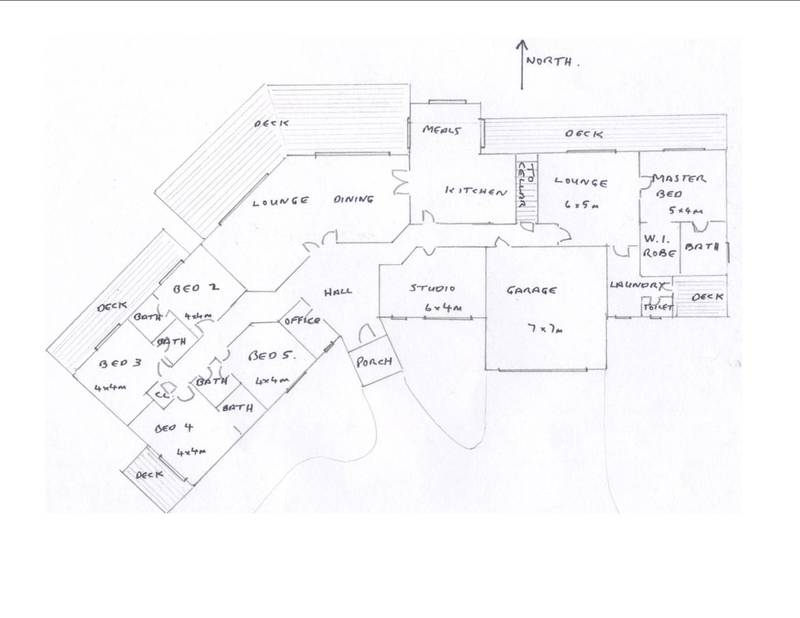 NORTH.
DECK
MEALS
DECK
TO CELLAR
LOUNGE
6x5m
MASTER
BED
5x4m
KITCHEN
LOUNGE DINING
W.I.
ROBE
BATH
BED 2
4x4m
HALL
STUDIO
6x4m
GARAGE
7x7m
LAUNDRY
TOILET
DECK
DECK
BATH
BATH
OFFICE
PORCH
BED 3
4x4m
BED 5.
4x4m
BATH
CL.
BATH
BED 4
4x4m
DECK